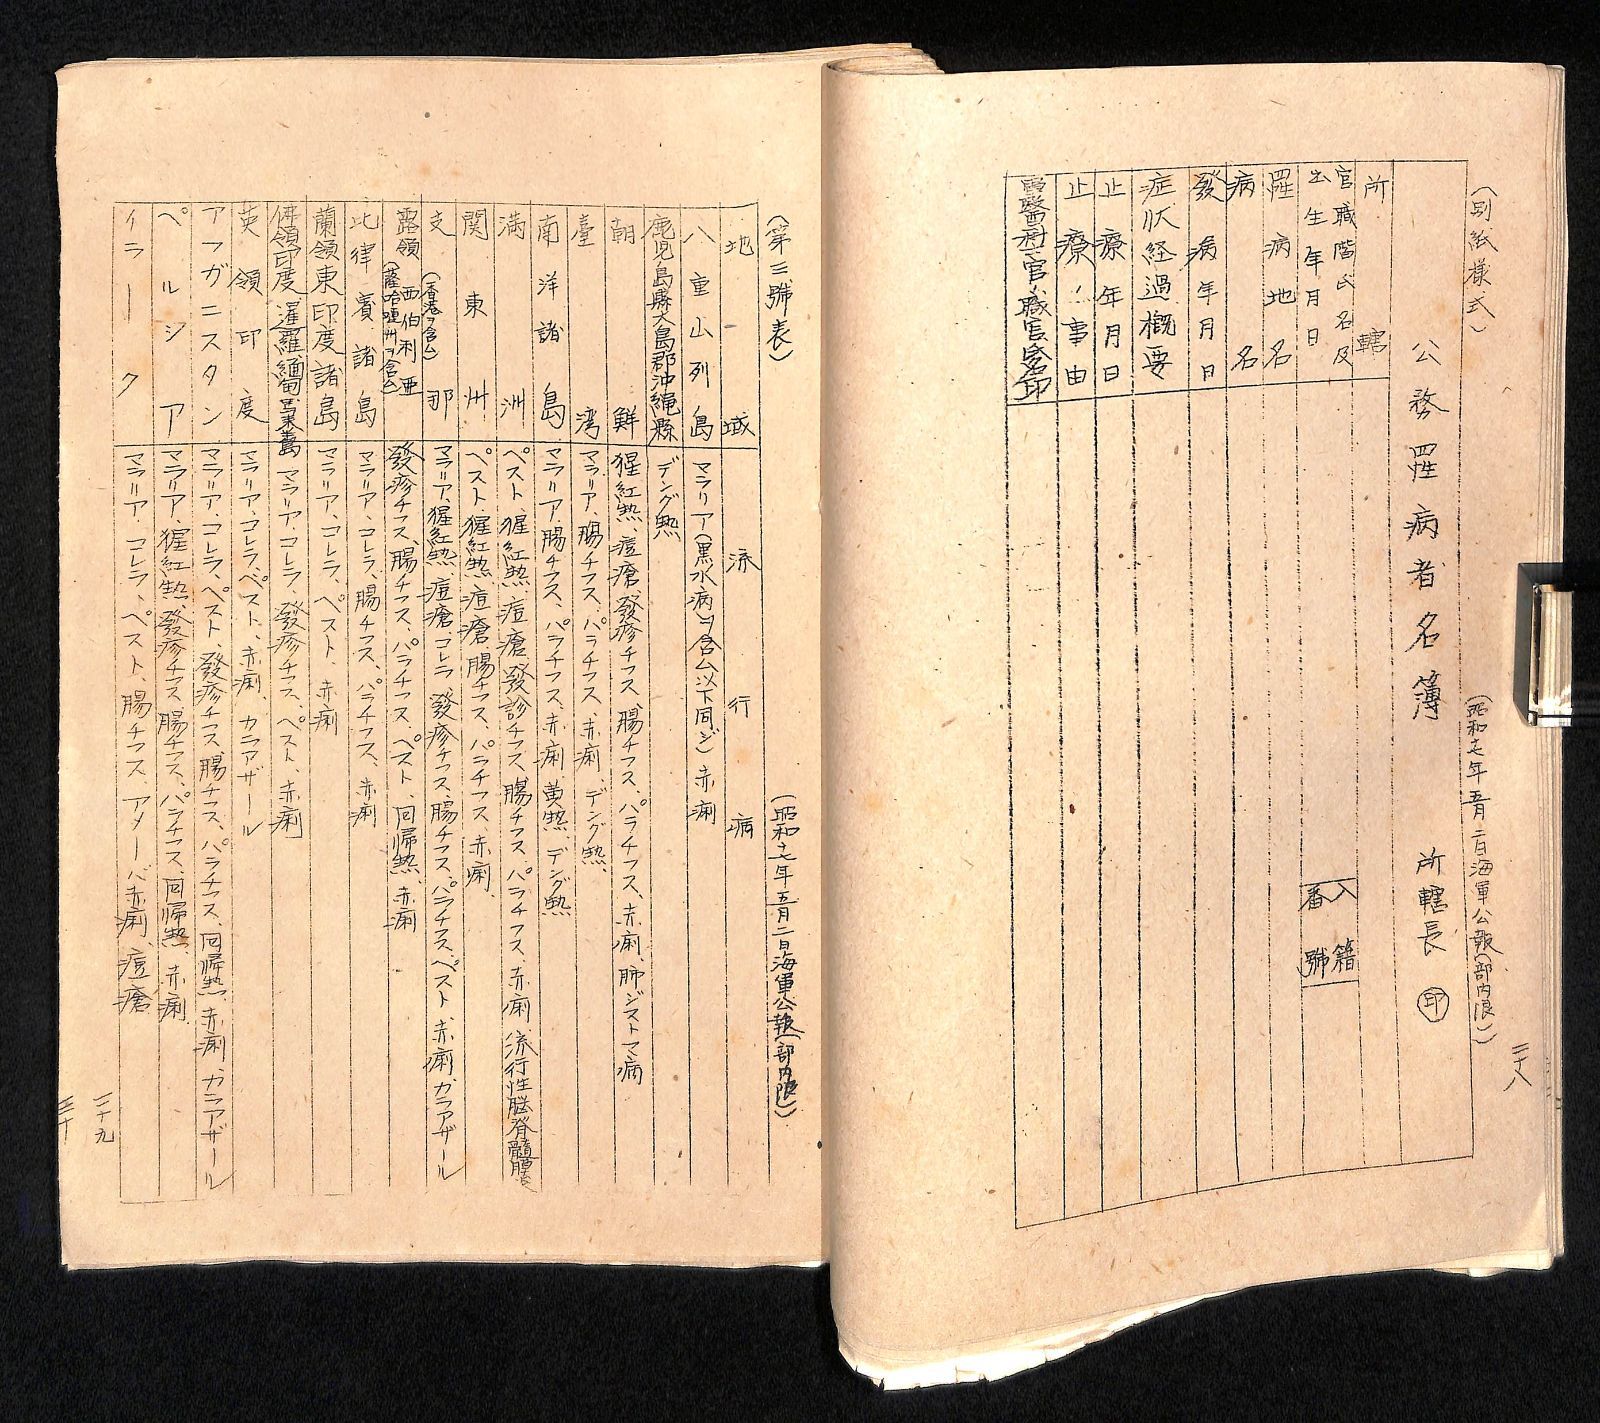 (別紙様式)
(昭和十七年五月二日海軍公報(部内限))
二十八
公務罹病者名簿
所轄長 印
所轄
官職階氏名及
出生年月日
入籍
番號
罹病地名
病名
發病年月日
症状経過概要
止療年月日
止療ノ事由
(第三號表)
(昭和十七年五月二日海軍公報(部内限))
地域 流行病
八重山列島 マラリア(黒水病ヲ含ム以下同ジ)赤痢
鹿児島縣大島郡沖縄縣 デング熱
朝鮮 猩紅熱、痘瘡、發疹チフス、腸チフス、パラチフス、赤痢、肺ジストマ病
臺湾 マラリア、腸チフス、パラチフス、赤痢、デング熱、
南洋諸島 マラリア、腸チフス、パラチフス、赤痢、黄熱、デング熱
満洲 ペスト、猩紅熱、痘瘡、發診チフス、腸チフス、パラチフス、赤痢、流行性脳脊髄膜炎
関東州 ペスト、猩紅熱、痘瘡、腸チフス、パラチフス、赤痢、
支那(香港ヲ含ム) マラリア、猩紅熱、痘瘡、コレラ、發疹チフス、腸チフス、パラチフス、ペスト、赤痢、カラアザール
露領西伯利亜(薩哈嗹州ヲ含ム) 發疹チフス、腸チフス、パラチフス、ペスト、回帰熱、赤痢
比律賓諸島 マラリア、コレラ、腸チフス、パラチフス、赤痢
蘭領東印度諸島 マラリア、コレラ、ペスト、赤痢
佛領印度暹羅緬甸馬来半島 マラリア、コレラ、發疹チフス、ペスト、赤痢
英領印度 マラリア、コレラ、ペスト、赤痢、カラアザール
アフガニスタン マラリア、コレラ、ペスト、發疹チフス、腸チフス、パラチフス、回帰熱、赤痢、カラアザール
ペルシア マラリア、猩紅熱、發疹チフス、腸チフス、パラチフス、回帰熱、赤痢、
イラーク マラリア、コレラ、ペスト、腸チフス、アメーバ赤痢、痘瘡
二十九
三十